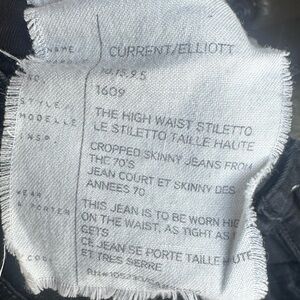 NAME CURRENT/ELLIOTT
NO. 1609
STYLE/ THE HIGH WAIST STILETTO
MODELLE LE STILETTO TAILLE HAUTE
CROPPED SKINNY JEANS FROM
THE 70'S
JEAN COURT ET SKINNY DES
ANNEES 70
WEAR THIS JEAN IS TO BE WORN HIG
A PORTER ON THE WAIST, AS TIGHT AS I
GETS
CE JEAN SE PORTE TAILLE HAUTE
ET TRES SERRE